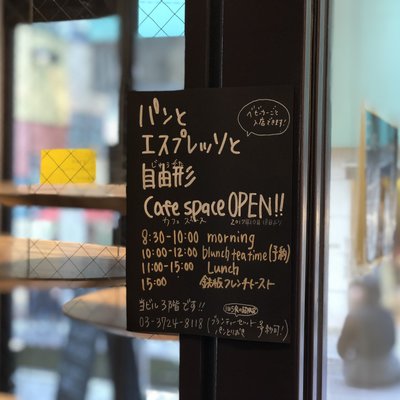 パンと
ベビーカーごと
入店できます!
エスプレッソと
じゆうがた
自由形
Cafe space OPEN!!
カフェ スペース
8:30-10:00 morning
10:00-12:00 blunch teatime(予約)
11:00-15:00 Lunch
15:00 鉄板フレンチトースト
当ビル3階です!!
03-3724-8118 (ブランティーセット
パンとりおき 予約可!)